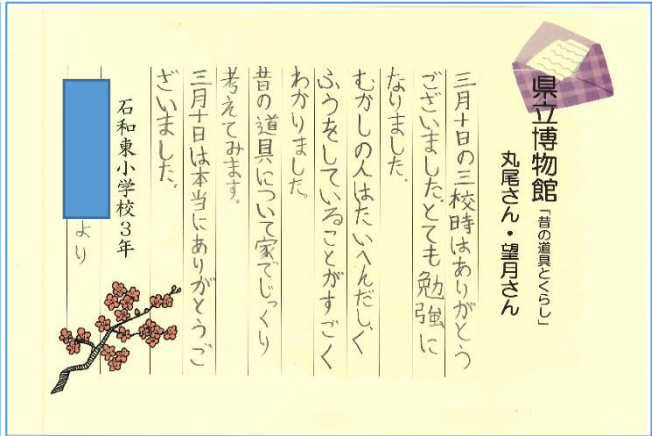 県立博物館「昔の道具とくらし」
丸尾さん・望月さん
三月十日の三校時はありがとう
ございました。とても勉強に
なりました。
むかしの人はたいへんだし、く
ふうをしていることがすごく
わかりました。
昔の道具について家でじっくり
考えてみます。
三月十日は本当にありがとうご
ざいました。
石和東小学校3年
より